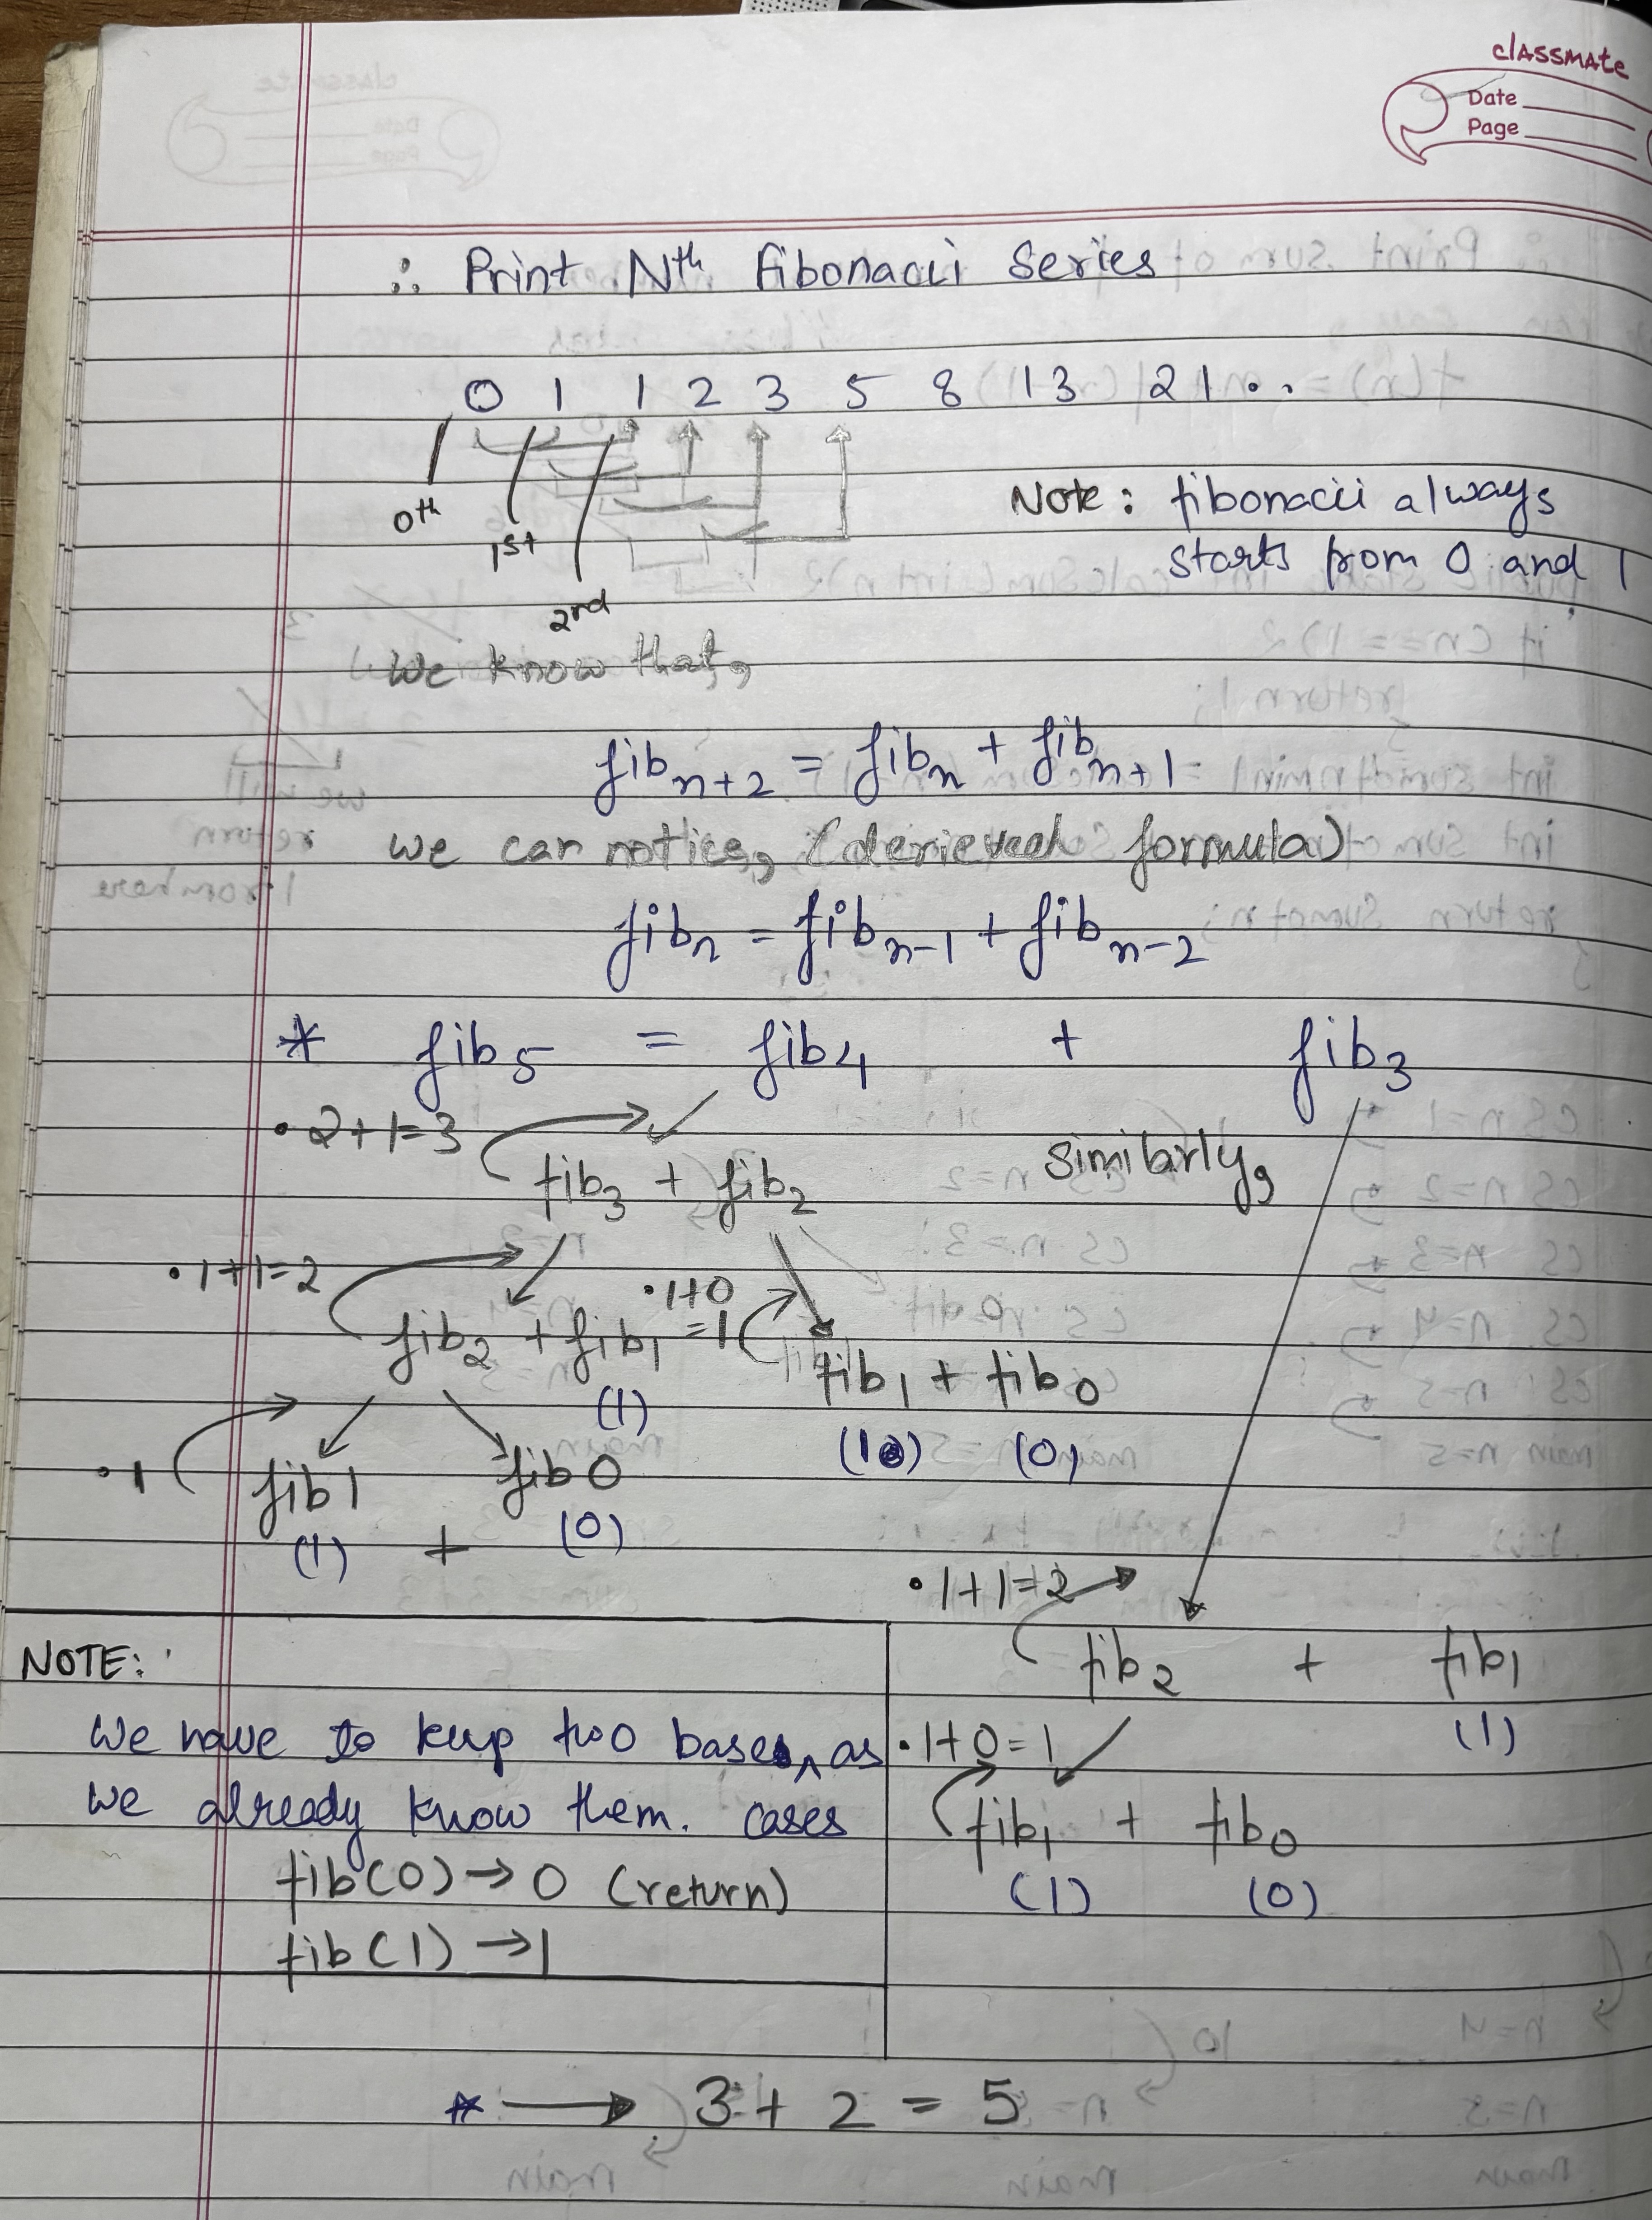 classmate
Date
Page
∴ Print Nth Fibonacii Series
0 1 1 2 3 5 8 13 21..
0th
1st
2nd
Note: fibonacii always
starts from 0 and 1
We know that,
fib n+2 = fib n + fib n+1
we can notice, (derieved formula)
fib n = fib n-1 + fib n-2
* fib 5 = fib 4 + fib 3
• 2+1=3
fib 3 + fib 2
Similarly,
• 1+1=2
• 1+0
=1
fib 2 + fib 1
(1)
fib 1 + fib 0
(1) (0)
• 1
fib 1 + fib 0
(1) (0)
• 1+1=2
fib 2 + fib 1
(1)
• 1+0=1
fib 1 + fib 0
(1) (0)
NOTE:
We have to keep two base ^, as
we already know them. cases
fib(0) → 0 (return)
fib(1) → 1
* → 3 + 2 = 5